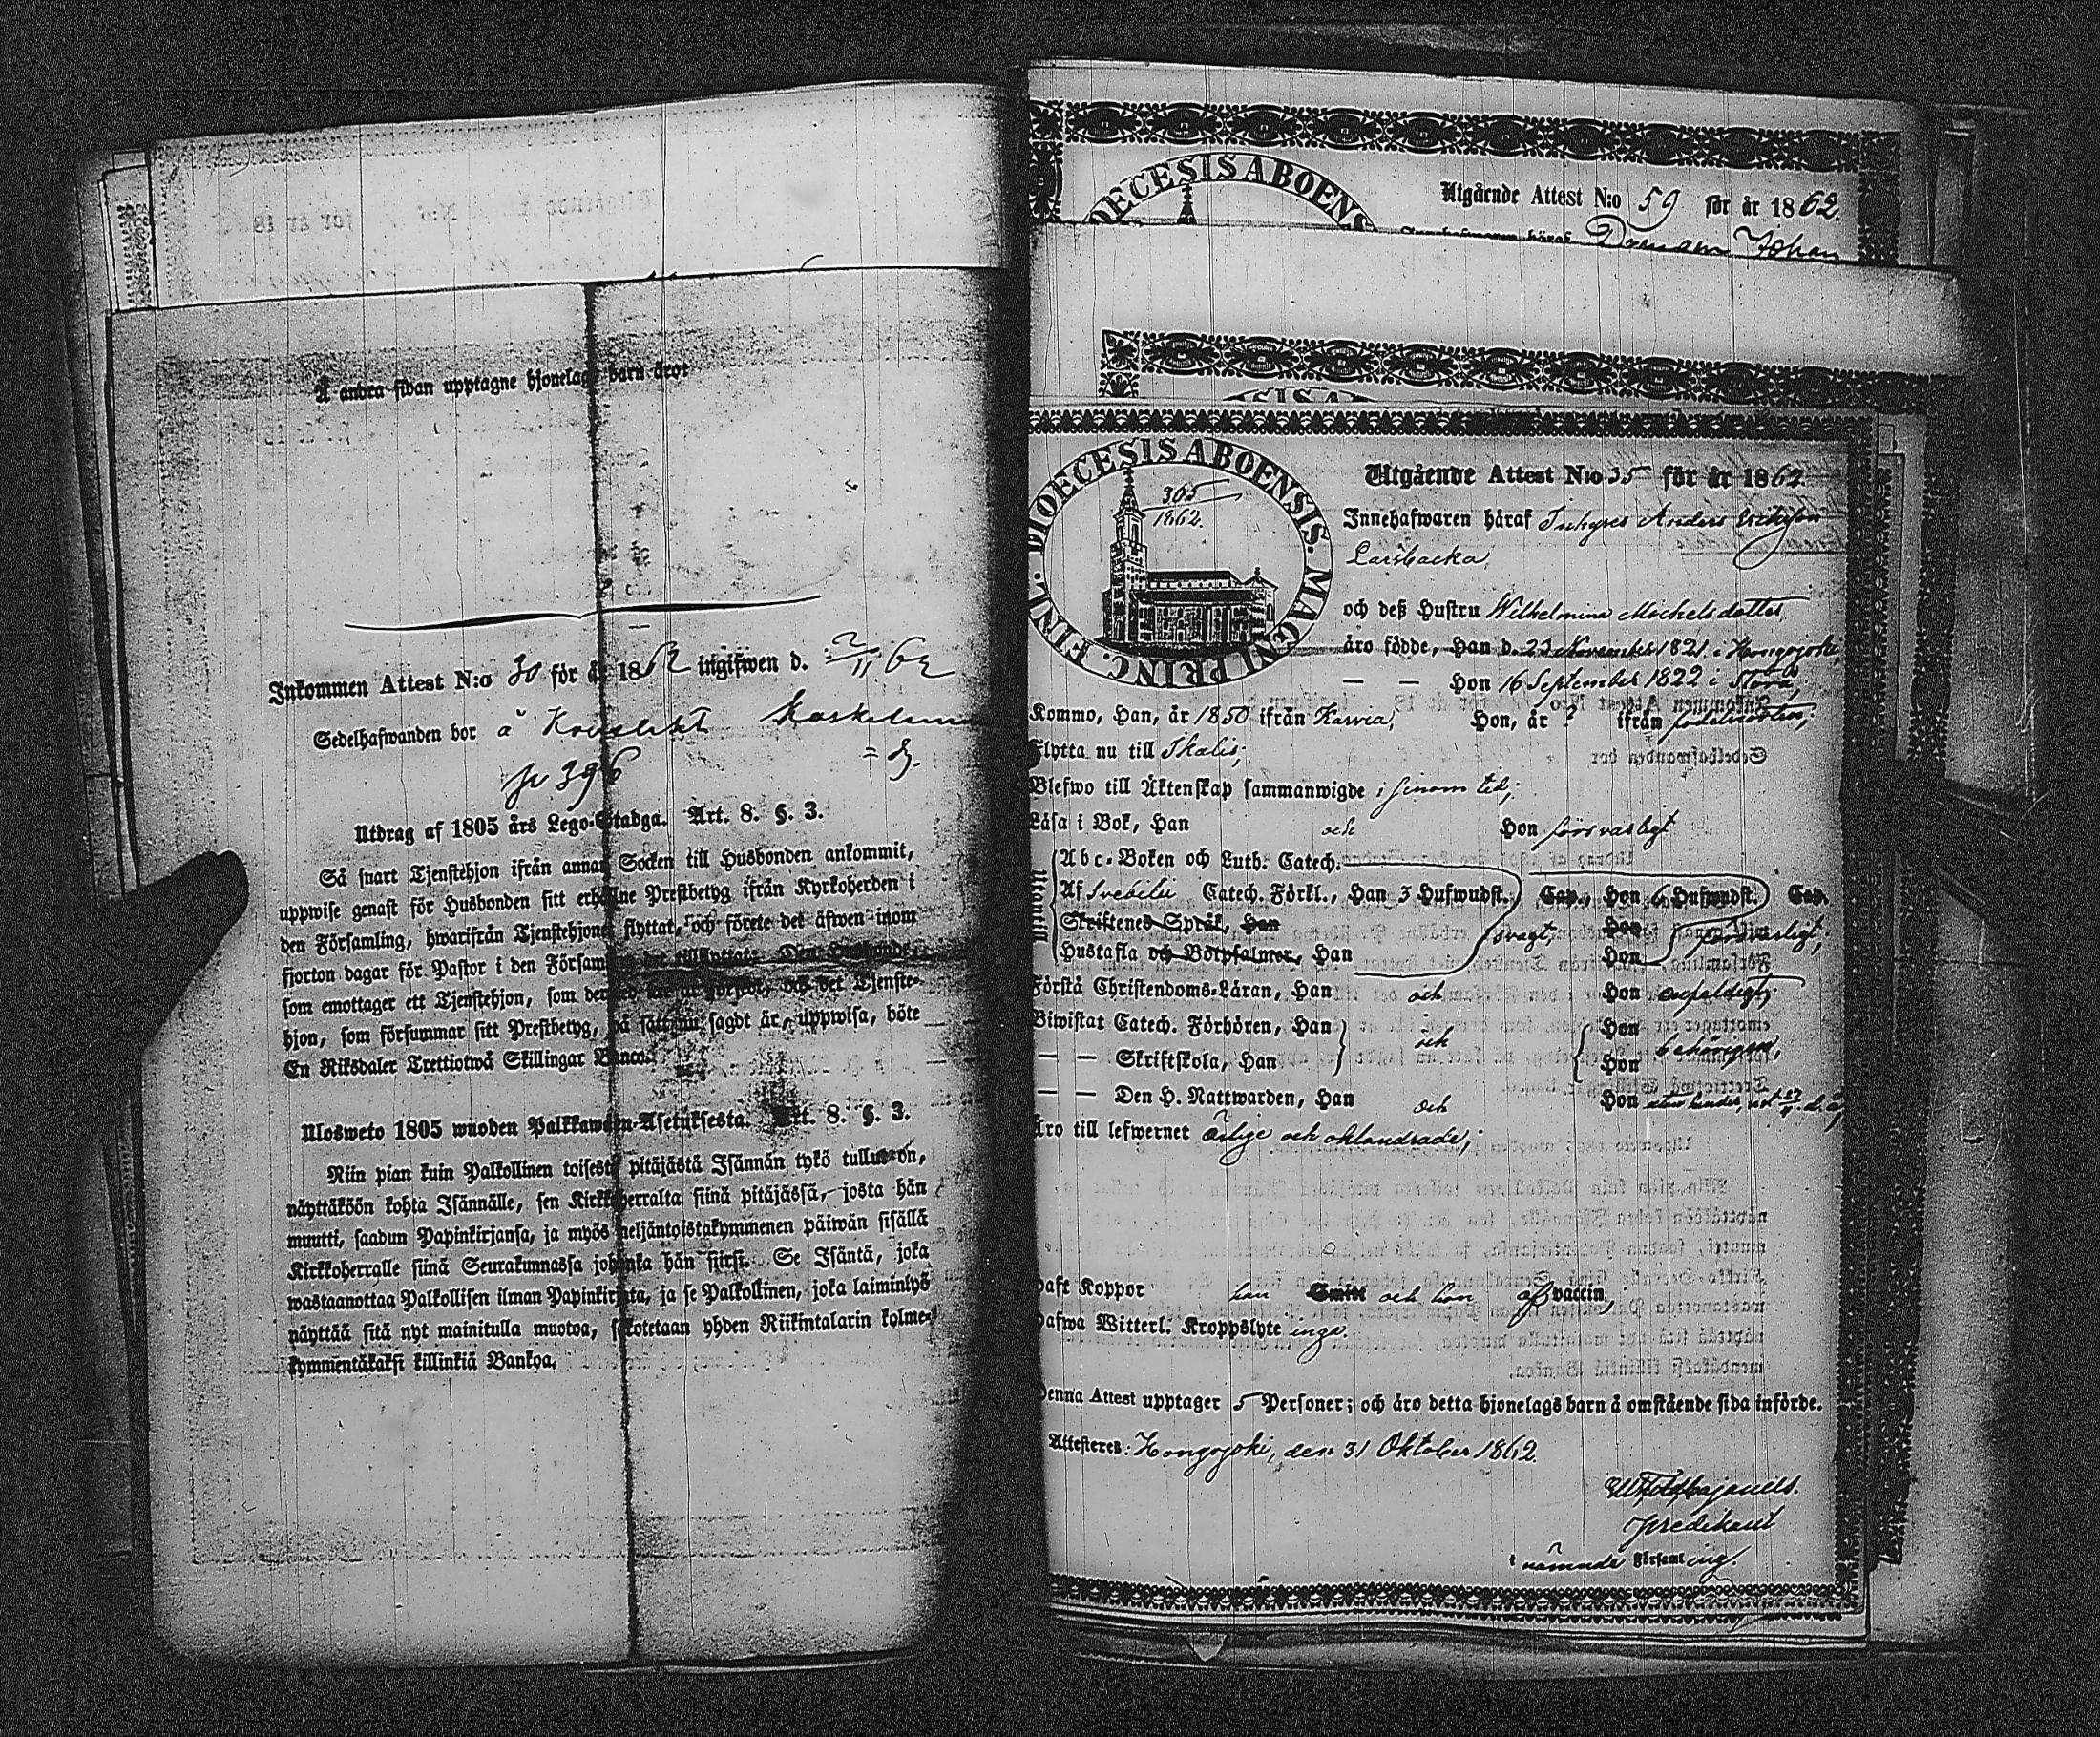 Å andra sidan upptagne hjonelags barn äro:
Inkommen Attest N:o 30 för år 1862 ingifwen d. 2/11 62
Sedelhafwanden bor å
Utdrag af 1805 års Lego-Stadga. Art. 8. §. 3.
Så snart Tjenstehjon ifrån annan Socken till Husbonden ankommit,
uppwise genast för Husbonden sitt erhållne Prestbetyg ifrån Kyrkoherden i
den Församling, hwarifrån Tjenstehjonet flyttat, och förete det äfwen inom
fjorton dagar för Pastor i den Församling det tillflyttat. Den Husbonde,
som emottager ett Tjenstehjon, som det Tjenste-
hjon, som försummar sitt Prestbetyg, på sätt nu sagdt är, uppwisa, böte
En Riksdaler Trettiotwå Skillingar Banco.
Ulosweto 1805 wuoden Palkkawäen-Asetuksesta. Art. 8. §. 3.
Niin pian kuin Palkollinen toisesta pitäjästä Isännän tykö tullut on,
näyttäköön kohta Isännälle, sen Kirkkoherralta siinä pitäjässä, josta hän
muutti, saadun Papinkirjansa, ja myös neljäntoistakymmenen päiwän sisällä
Kirkkoherralle siinä Seurakunnassa johonka hän siirsi. Se Isäntä, joka
wastaanottaa Palkollisen ilman Papinkirjata, ja se Palkollinen, joka laiminlyö
näyttää sitä nyt mainitulla muotoa, sakotetaan yhden Riikintalarin kolme-
kymmentäkaksi killinkiä Bankoa.
DIOECESIS ABOENS
Utgående Attest N:o 59 för år 1862.
Johan
DIOECESIS ABOENSIS. MAGNI PRINC. FINL.
305
1862.
Utgående Attest N:o 35 för år 1862.
Innehafwaren häraf Inhyses Anders Eriksson
Larsbacka,
och deß Hustru Wilhelmina Michelsdotter,
äro födde, Han d. 23 November 1821 i Hongojoki,
— — Hon 16 September 1822 i Storå,
Kommo, Han, år 1850 ifrån Karvia, Hon, år ? ifrån födelseorten;
Flytta nu till Ikalis;
Blefwo till Äktenskap sammanwigde i sinom tid;
Läsa i Bok, Han och Hon försvarligt
Abc-Boken och Luth. Catech.
Af Svebelii Catech. Förkl., Han 3 Hufwudst. Cap., Hon 6 Hufwudst. Cap.
Skriftenes Språk, Han svagt, Hon försvarligt,
Hustafla och Botpsalmer, Han Hon
Förstå Christendoms-Läran, Han och Hon enfaldigt;
Biwistat Catech. Förhören, Han och Hon behörigen,
— — Skriftskola, Han Hon
— — Den H. Nattwarden, Han och Hon
Äro till lefwernet ärlige och oklandrade;
Haft Koppor han Smitt och hon af vaccin,
Hafwa Witterl. Kroppslyte inga.
Denna Attest upptager 5 Personer; och äro detta hjonelags barn å omstående sida införde.
Attesteres: Hongojoki, den 31 Oktober 1862.
Predikant
i nämnde Församling.